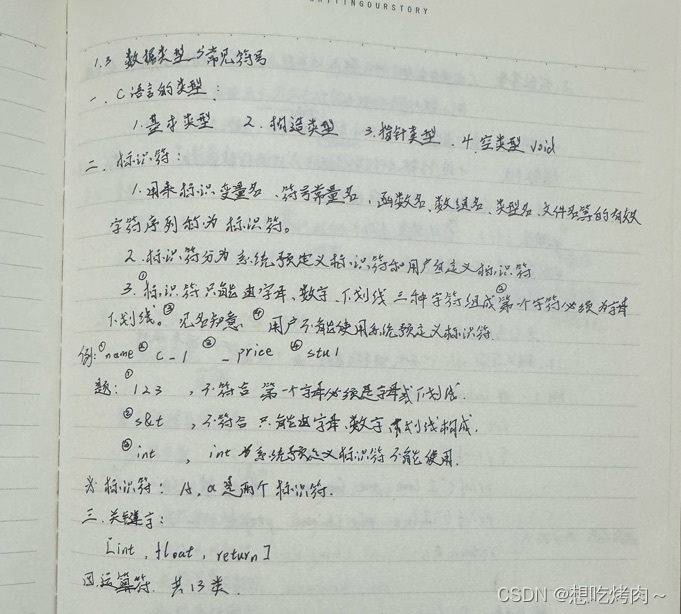 WRITINGOURSTORY
1.3 数据类型与常见符号
一、C语言的类型：
1.基本类型 2.构造类型 3.指针类型 4.空类型void
二、标识符：
1.用来标识变量名、符号常量名、函数名、数组名、类型名、文件名等的有效
字符序列称为标识符。
2.标识符分为系统预定义标识符和用户自定义标识符
3.①标识符只能由字母、数字、下划线三种字符组成②第一个字符必须为字母
下划线。③见名知意 ④用户不能使用系统预定义标识符
例:①name ② c_1 ③ _price ④ stu1
题: ①123 ,不符合 第一个字母必须是字母或下划线.
②s&t ,不符合 只能由字母、数字 下划线构成.
③int , int为系统预定义标识符不能使用.
※标识符: A, a是两个标识符.
三.关键字:
[int, float, return]
四.运算符. 共13类.
CSDN @想吃烤肉～